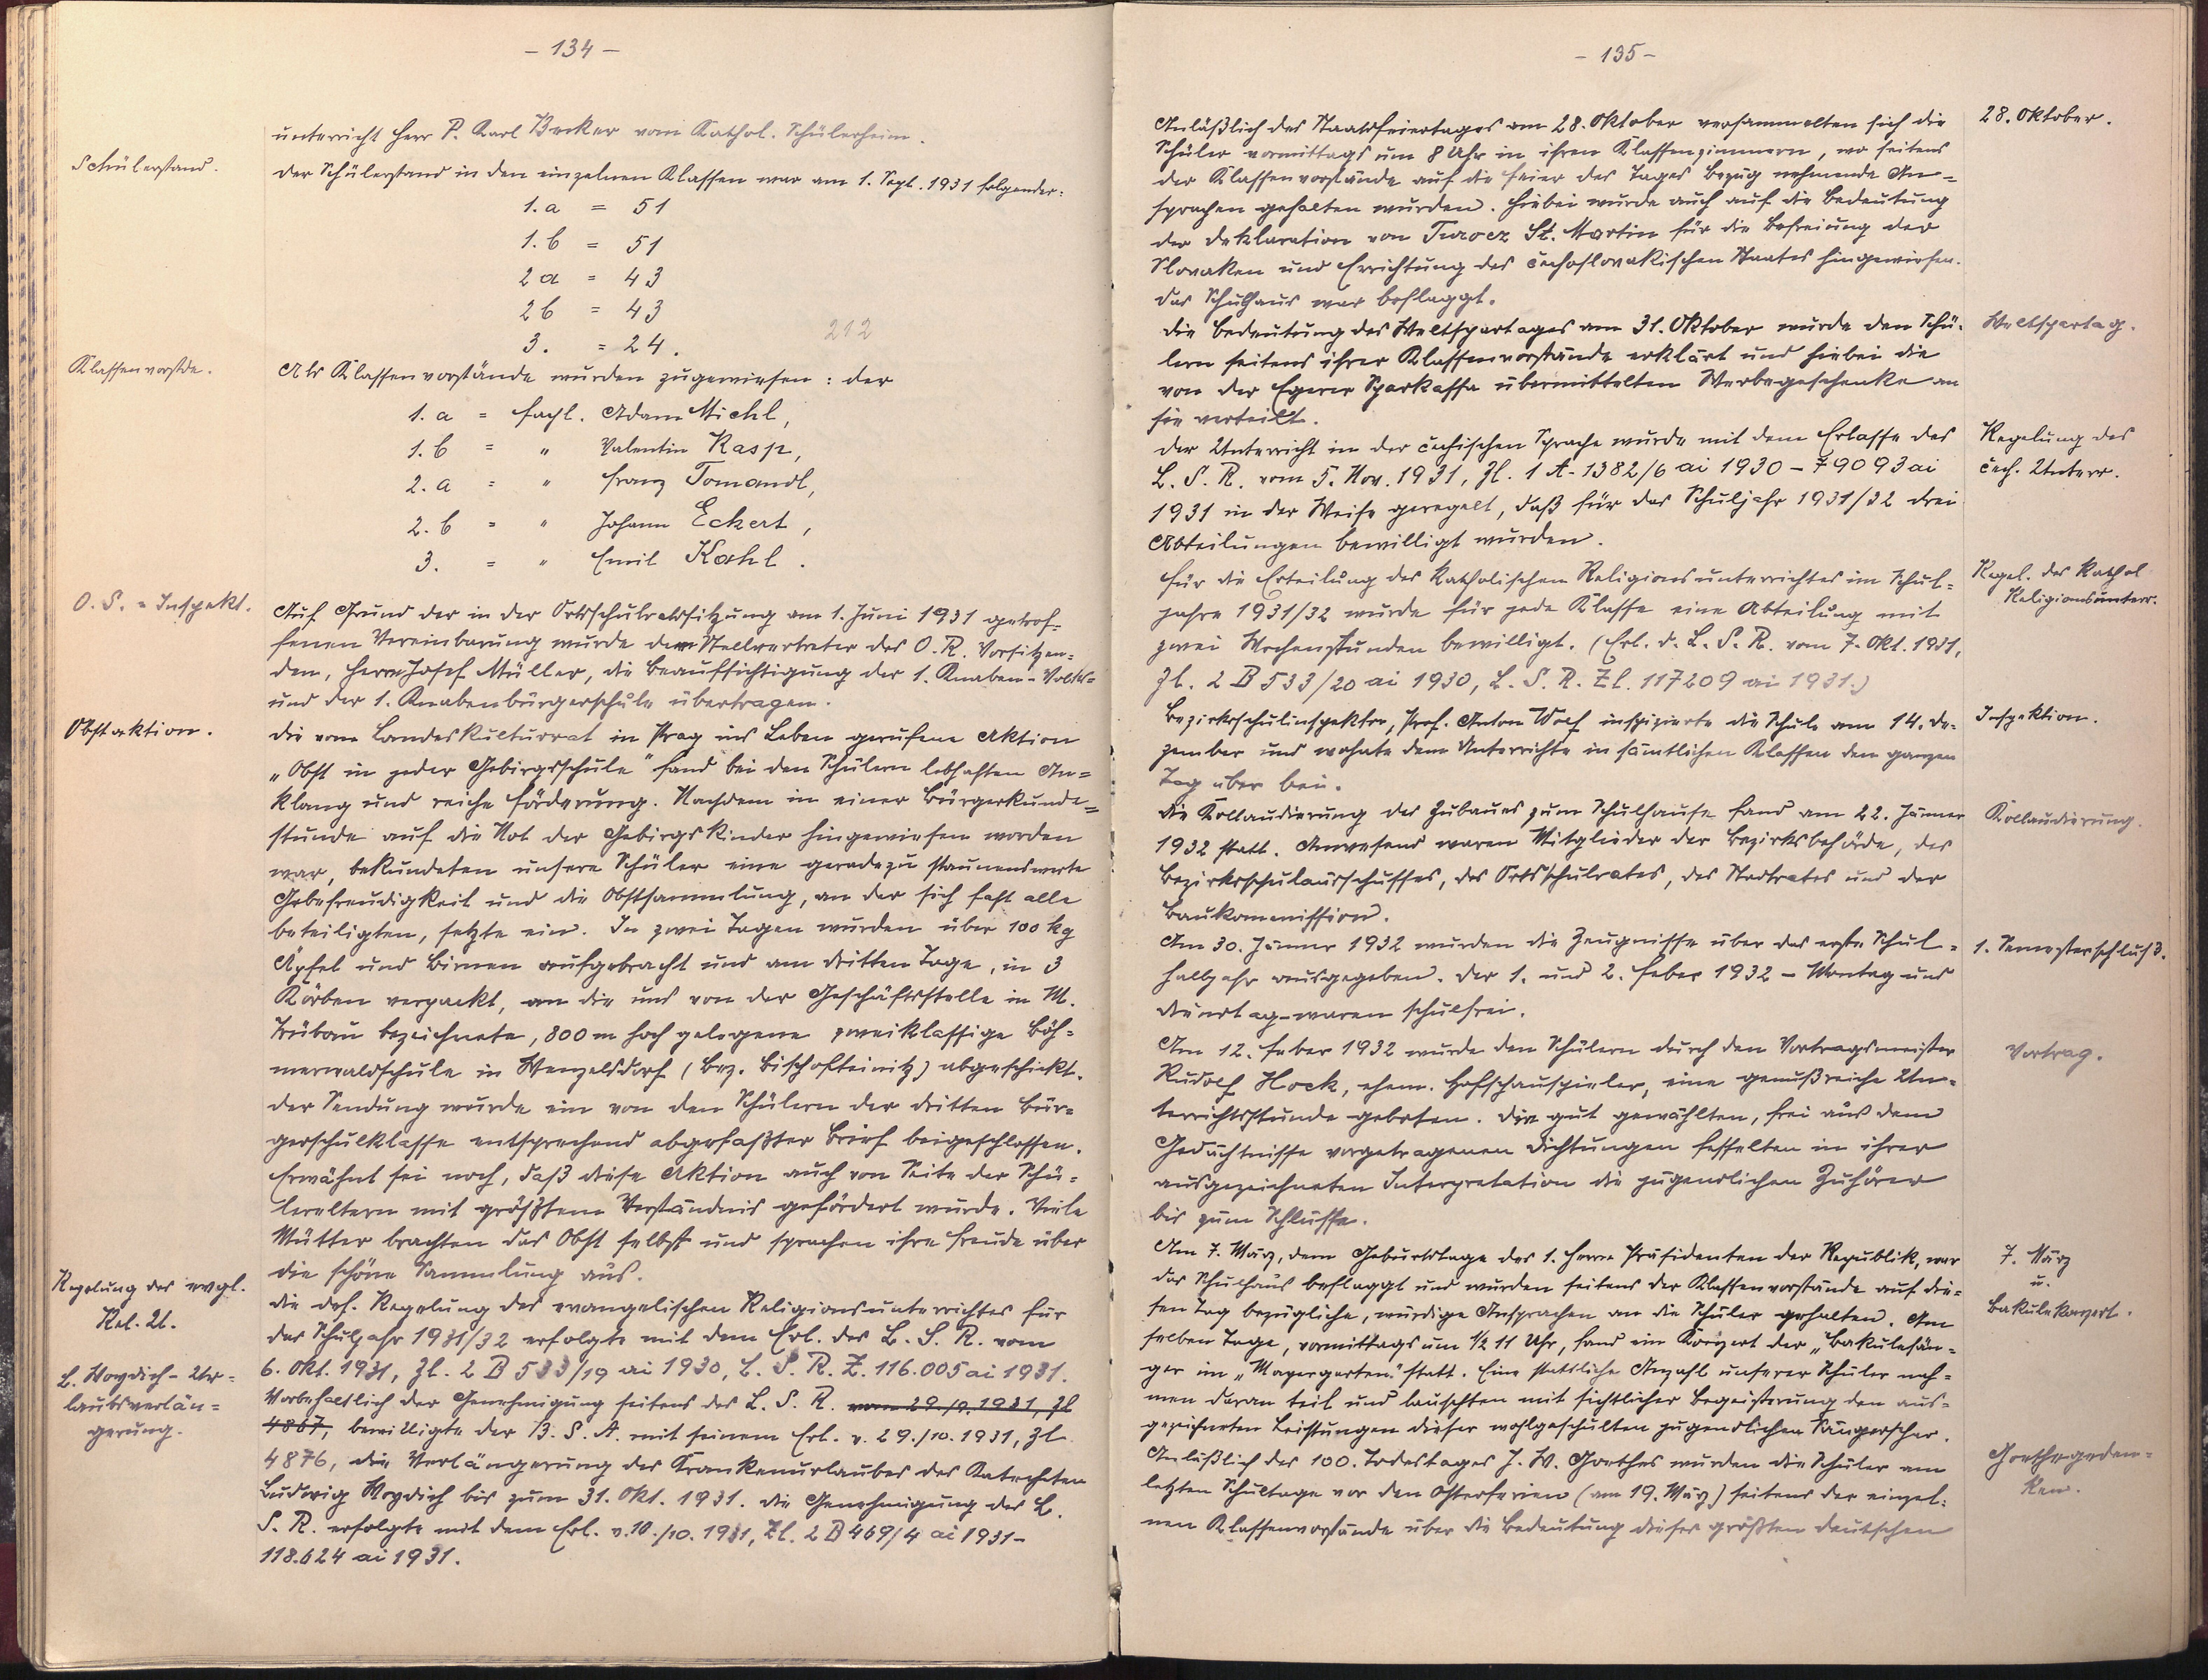 - 134 -
unterricht Herr P. Karl Becker vom Kathol. Schülerheim.
Schülerstand.
Der Schülerstand in den einzelnen Klassen war am 1. Sept. 1931 folgender:
1.a = 51
1.b = 51
2 a = 43
2 b = 43
3. = 24.
212
Klassenvorstde.
Als Klassenvorstände wurden zugewiesen: der
1.a = Fachl. Adam Michl,
1.b = " Valentin Rasp,
2.a = " Franz Tomandl,
2.b = " Johann Eckert,
3. = " Emil Kohl.
O.S.-Inspekt.
Auf Grund der in der Ortsschulratssitzung am 1. Juni 1931 getrof-
fenen Vereinbarung wurde dem Stellvertreter des O.R. Vorsitzen-
den, Herrn Josef Müller, die Beaufsichtigung der 1. Knaben-Volks-
und der 1. Knabenbürgerschule übertragen.
Obstaktion.
Die vom Landeskulturrat in Prag ins Leben gerufene Aktion
„Obst in jeder Gebirgsschule" fand bei den Schülern lebhaften An-
klang und reiche Förderung. Nachdem in einer Bürgerkunde-
stunde auf die Not der Gebirgskinder hingewiesen worden
war, bekundeten unsere Schüler eine geradezu staunenswerte
Gebefreudigkeit und die Obstsammlung, an der sich fast alle
beteiligten, setzte ein. In zwei Tagen wurden über 100 kg
Äpfel und Birnen aufgebracht und am dritten Tage, in 3
Körben verpackt, an die uns von der Geschäftsstelle in M.
Trübau bezeichnete, 800 m hoch gelegene zweiklassige Böh-
merwaldschule in Wenzelsdorf (Bez. Bischofteinitz) abgeschickt.
Der Sendung wurde ein von den Schülern der dritten Bür-
gerschulklasse entsprechend abgefaßter Brief beigeschlossen.
Erwähnt sei noch, daß diese Aktion auch von Seite der Schü-
lereltern mit größtem Verständnis gefördert wurde. Viele
Mütter brachten das Obst selbst und sprachen ihre Freude über
die schöne Sammlung aus.
Regelung des evgl.
Rel. U.
Die def. Regelung des evangelischen Religionsunterrichtes für
das Schuljahr 1931/32 erfolgte mit dem Erl. des L.S.R. vom
6. Okt. 1931, Zl. 2 B 533/19 ai 1930, L.S.R. Z. 116.005 ai 1931.
L. Woydich-Ur-
laubsverlän-
gerung.
Vorbehaltlich der Genehmigung seitens des L.S.R. vom 29./9.1931, Zl
4867, bewilligte der B.S.A. mit seinem Erl. v. 29./10. 1931, Zl
4876, die Verlängerung des Krankenurlaubes des Katecheten
Ludwig Woydich bis zum 31. Okt. 1931. Die Genehmigung des L.
S.R. erfolgte mit dem Erl. v. 10./10. 1931, Zl. 2 B 469/4 ai 1931-
118.624 ai 1931.
- 135 -
28. Oktober.
Anläßlich des Staatsfeiertages am 28. Oktober versammelten sich die
Schüler vormittags um 8 Uhr in ihren Klassenzimmern, wo seitens
der Klassenvorstände auf die Feier des Tages Bezug nehmende An-
sprachen gehalten wurden. Hiebei wurde auch auf die Bedeutung
der Deklaration von Turocz St. Martin für die Befreiung der
Slovaken und Errichtung des čechoslovakischen Staates hingewiesen.
Das Schulhaus war beflaggt.
Weltspartag.
Die Bedeutung des Weltspartages am 31. Oktober wurde den Schü-
lern seitens ihrer Klassenvorstände erklärt und hiebei die
von der Egerer Sparkassa übermittelten Werbegeschenke an
sie verteilt.
Regelung des
čech. Unterr.
Der Unterricht in der čechischen Sprache wurde mit dem Erlasse des
L.S.R. vom 5. Nov. 1931, Zl. 1 A-1382/6 ai 1930 - 79093 ai
1931 in der Weise geregelt, daß für das Schuljahr 1931/32 drei
Abteilungen bewilligt wurden.
Regel. des kathol
Religionsunterr.
Für die Erteilung des katholischen Religionsunterrichtes im Schul-
jahre 1931/32 wurde für jede Klasse eine Abteilung mit
zwei Wochenstunden bewilligt. (Erl. d. L.S.R. vom 7. Okt. 1931,
Zl. 2 B 533/20 ai 1930, L.S.R. Zl. 117209 ai 1931.)
Inspektion.
Bezirksschulinspektor, Prof. Anton Wolf inspizierte die Schule am 14. De-
zember und wohnte dem Unterrichte in sämtlichen Klassen den ganzen
Tag über bei.
Kollaudierung.
Die Kollaudierung des Zubaues zum Schulhause fand am 22. Jänner
1932 statt. Anwesend waren Mitglieder der Bezirksbehörde, des
Bezirksschulausschusses, des Ortsschulrates, des Stadtrates und der
Baukommission.
1. Semesterschluß.
Am 30. Jänner 1932 wurden die Zeugnisse über das erste Schul-
halbjahr ausgegeben. Der 1. und 2. Feber 1932 - Montag und
Dienstag - waren schulfrei.
Vortrag.
Am 12. Feber 1932 wurde den Schülern durch den Vortragsmeister
Rudolf Hock, ehem. Hofschauspieler, eine genußreiche Un-
terrichtsstunde geboten. Die gut gewählten, frei aus dem
Gedächtnisse vorgetragenen Dichtungen fesselten in ihrer
ausgezeichneten Interpretation die jugendlichen Zuhörer
bis zum Schlusse.
7. März
u.
Bakulekonzert.
Am 7. März, dem Geburtstage des 1. Herrn Präsidenten der Republik, war
das Schulhaus beflaggt und wurden seitens der Klassenvorstände auf die-
sen Tag bezügliche, würdige Ansprachen an die Schüler gehalten. Am
selben Tage, vormittags um ½ 11 Uhr, fand ein Konzert der „Bakulesän-
ger im „Mayergarten." statt. Eine stattliche Anzahl unserer Schüler nah-
men daran teil und lauschten mit sichtlicher Begeisterung den aus-
gezeichneten Leistungen dieser wohlgeschulten jugendlichen Sängerschar.
Goethegeden-
ken.
Anläßlich des 100. Todestages J. W. Goethes wurden die Schüler am
letzten Schultage vor den Osterferien (am 19. März) seitens der einzel-
nen Klassenvorstände über die Bedeutung dieses größten deutschen